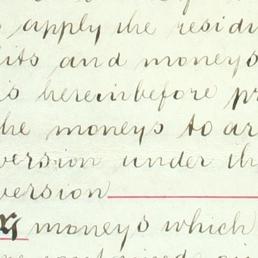 apply the residu
its and moneys
is hereinbefore pr
he moneys to ar
version under th
version
moneys which